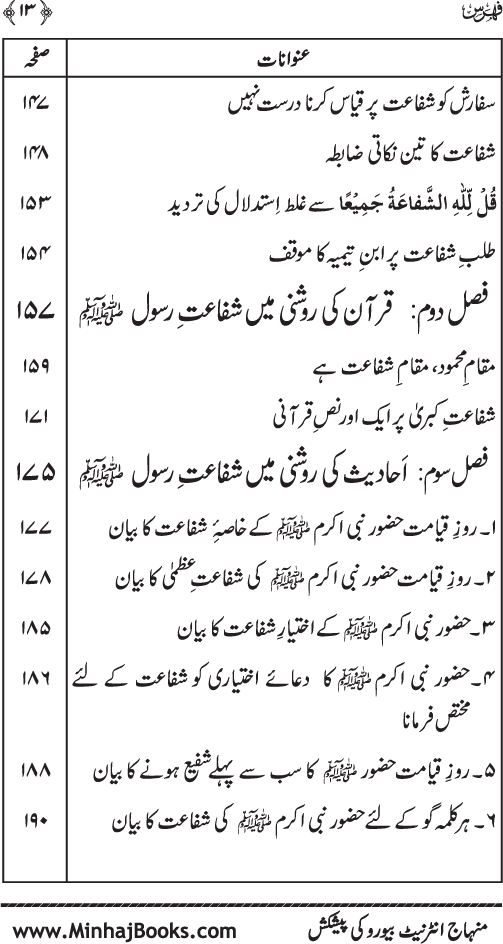 فہرس ﴿۱۳﴾
عنوانات صفحہ
سفارش کو شفاعت پر قیاس کرنا درست نہیں ۱۴۷
شفاعت کا تین نکاتی ضابطہ ۱۴۸
قُلْ لِّلّٰهِ الشَّفاعَةُ جَمِيْعًا سے غلط اِستدلال کی تردید ۱۵۳
طلبِ شفاعت پر ابنِ تیمیہ کا موقف ۱۵۴
فصل دوم: قرآن کی روشنی میں شفاعتِ رسول ﷺ ۱۵۷
مقامِ محمود، مقامِ شفاعت ہے ۱۵۹
شفاعتِ کبریٰ پر ایک اور نصِ قرآنی ۱۷۱
فصل سوم: اَحادیث کی روشنی میں شفاعتِ رسول ﷺ ۱۷۵
۱۔ روزِ قیامت حضور نبی اکرم ﷺ کے خاصۂ شفاعت کا بیان ۱۷۷
۲۔ روزِ قیامت حضور نبی اکرم ﷺ کی شفاعتِ عظمٰی کا بیان ۱۷۸
۳۔ حضور نبی اکرم ﷺ کے اختیارِ شفاعت کا بیان ۱۸۵
۴۔ حضور نبی اکرم ﷺ کا دعائے اختیاری کو شفاعت کے لئے ۱۸۶
مختص فرمانا
۵۔ روزِ قیامت حضور ﷺ کا سب سے پہلے شفیع ہونے کا بیان ۱۸۸
۶۔ ہر کلمہ گو کے لئے حضور نبی اکرم ﷺ کی شفاعت کا بیان ۱۹۰
منہاج انٹرنیٹ بیورو کی پیشکش www.MinhajBooks.com